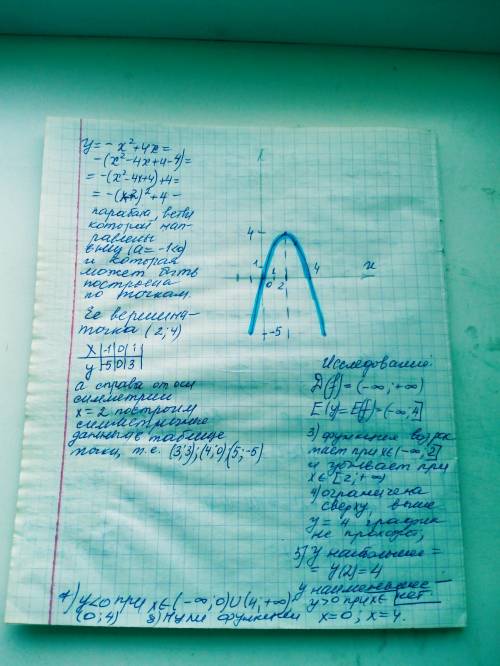 y = - x² + 4x =
- (x² - 4x + 4 - 4) =
= - (x² - 4x + 4) + 4 =
= - (x - 2)² + 4 -
парабола, ветви
которой нап-
равлены
вниз (a = -1 < 0)
и которая
может быть
построена
по точкам.
Ее вершина-
точка (2; 4)
x | -1 | 0 | 1
y | -5 | 0 | 3
а справа от оси
симметрии
x = 2 построим
симметричные
данным в таблице
точки, т.е. (3; 3); (4; 0); (5; -5)
4
1
0 1 2 4 x
-5
Исследование:
D(f) = (-∞; +∞)
E(y) = E(f) = (-∞; 4]
3) функция возрас
тает при x ∈ (-∞, 2]
и убывает при
x ∈ [2; +∞)
4) ограничена
сверху, выше
y = 4 график
не проходит,
5) y наибольшее =
= y(2) = 4
y наименьшее -
нет
7) y < 0 при x ∈ (-∞; 0) ∪ (4; +∞); y > 0 при x ∈
(0; 4) 8) Нули функции x = 0; x = 4.